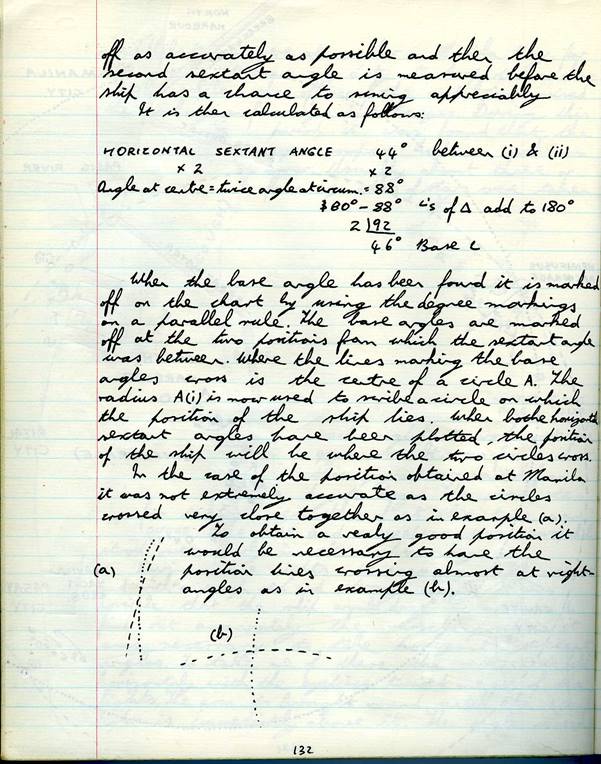 off as accurately as possible and then the
second sextant angle is measured before the
ship has a chance to swing appreciably
It is then calculated as follows:
HORIZONTAL SEXTANT ANGLE 44° between (i) & (ii)
× 2 × 2
Angle at centre = twice angle at circum. = 88°
180° - 88° L's of Δ add to 180°
2 | 92
46° Base L
When the base angle has been found it is marked
off on the chart by using the degree markings
on a parallel rule. The base angles are marked
off at the two positions from which the sextant angle
was between. Where the lines marking the base
angles cross is the centre of a circle A. The
radius A(i) is now used to scribe a circle on which
the position of the ship lies. When both horizontal
sextant angles have been plotted, the position
of the ship will be where the two circles cross.
In the case of the position obtained at Manila
it was not extremely accurate as the circles
crossed very close together as in example (a).
To obtain a realy good position it
would be necessary to have the
(a) position lines crossing almost at right-
angles as in example (b).
(b)
132